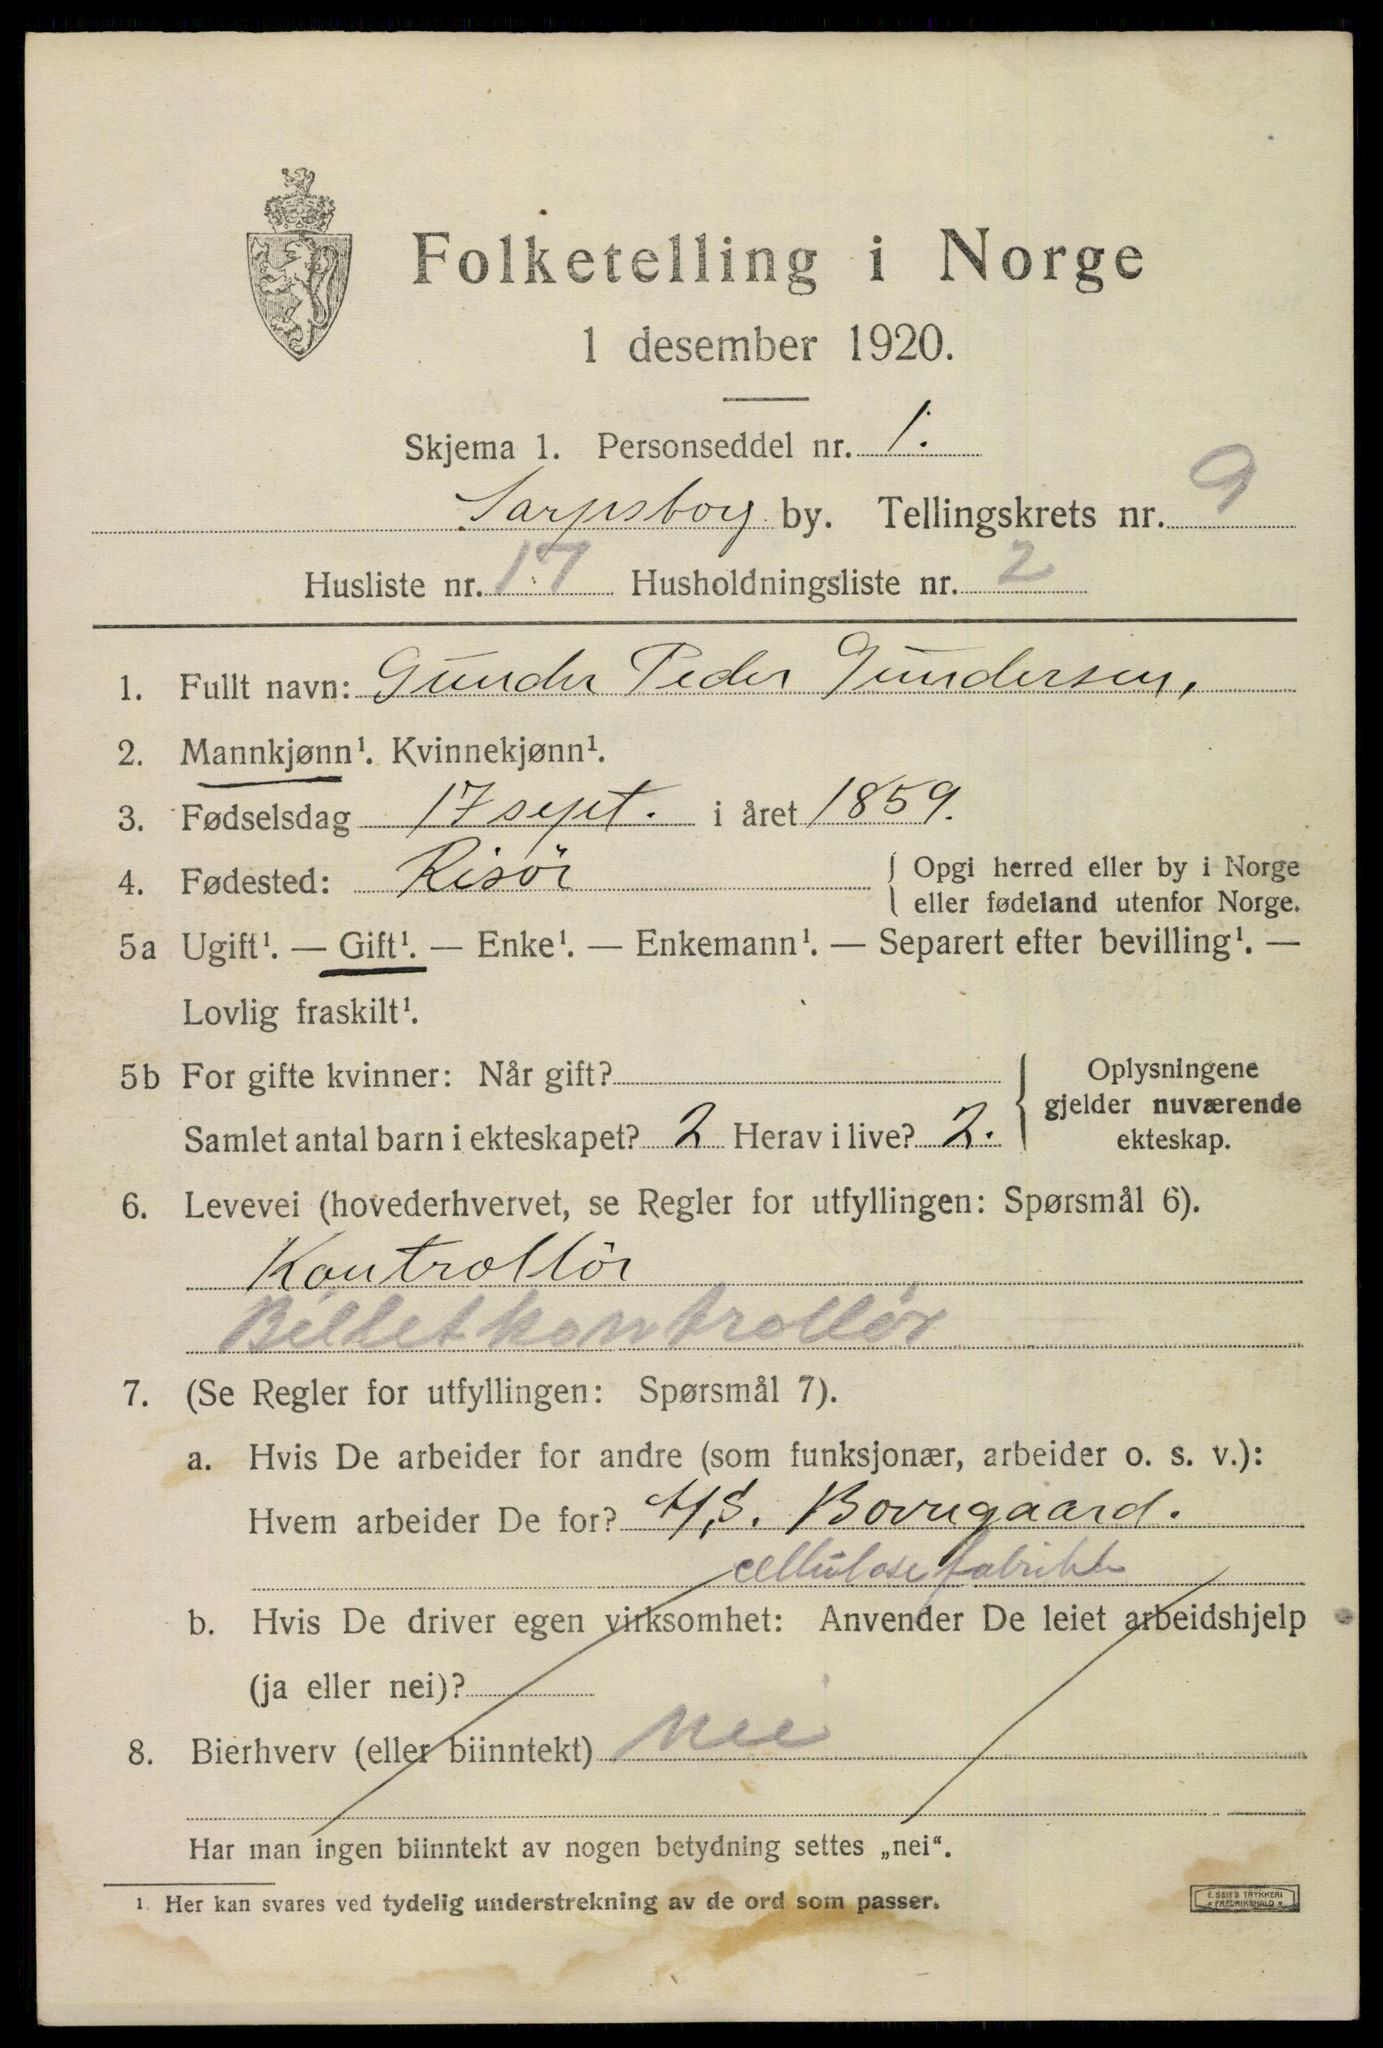 Folketelling i Norge
1 desember 1920.
Skjema 1. Personseddel nr. 1.
Sarpsborg by. Tellingskrets nr. 9
Husliste nr. 17 Husholdningsliste nr. 2
1. Fullt navn: Gunder Peder Gundersen,
2. Mannkjønn¹. Kvinnekjønn¹.
3. Fødselsdag 17 sept. i året 1859.
4. Fødested: Risör { Opgi herred eller by i Norge
eller fødeland utenfor Norge.
5a Ugift¹. — Gift¹. — Enke¹. — Enkemann¹. — Separert efter bevilling¹. —
Lovlig fraskilt¹.
5b For gifte kvinner: Når gift? { Oplysningene
gjelder nuværende
Samlet antal barn i ekteskapet? 2 Herav i live? 2. ekteskap.
6. Levevei (hovederhvervet, se Regler for utfyllingen: Spørsmål 6).
Kontrollör
Billetkontrollør
7. (Se Regler for utfyllingen: Spørsmål 7).
a. Hvis De arbeider for andre (som funksjonær, arbeider o. s. v.):
Hvem arbeider De for? A/S. Borregaard.
cellulosefabrikk
b. Hvis De driver egen virksomhet: Anvender De leiet arbeidshjelp
(ja eller nei)?
8. Bierhverv (eller biinntekt) nei
Har man ingen biinntekt av nogen betydning settes „nei“.
1. Her kan svares ved tydelig understrekning av de ord som passer.
E. SEM'S TRYKKERI
FREDRIKSHALD